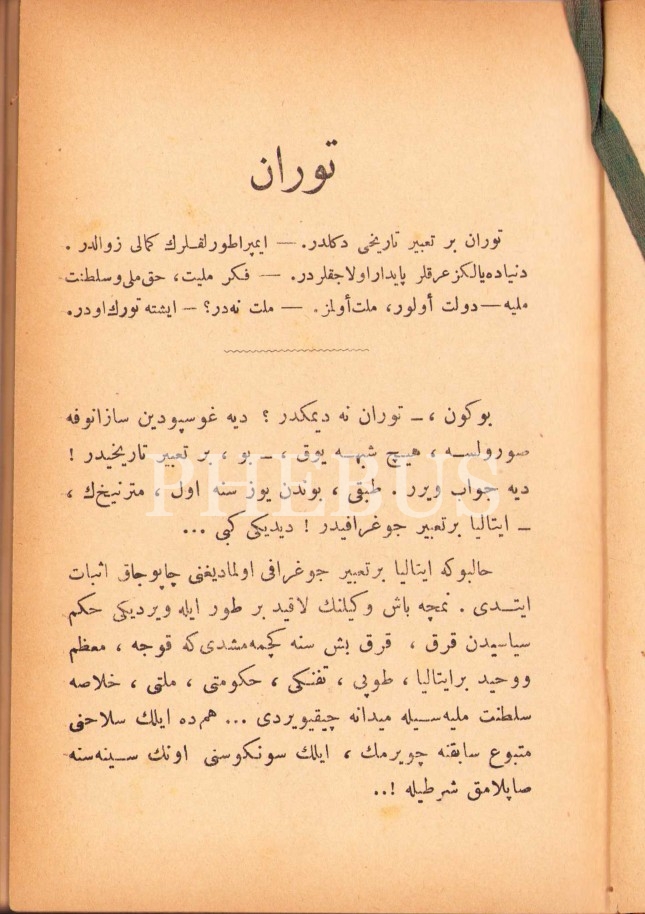 توران
توران بر تعبیر تاریخی دکلدر. — ایمپراطورلقلرك کمالی زوالدر .
دنیاده یالکز عرقلر پایدار اولاجقلردر. — فکر ملیت، حق ملی و سلطنت
ملیه — دولت أولور، ملت أولمز. — ملت نه‌در؟ — ایشته تورك اودر.
بوکون ، — توران نه دیمکدر ؟ دیه غوسپودین سازانوفه
صورولسه ، هیچ شبهه یوق ، — بو ، بر تعبیر تاریخیدر !
دیه جواب ویرر . طبقی ، بوندن یوز سنه اول ، مترنیخ‌ك ،
— ایتالیا بر تعبیر جوغرافیدر ! دیدیکی کبی ...
حالبوکه ایتالیا بر تعبیر جوغرافی اولمادیغنی چاپوجاق اثبات
ایتدی . نمچه باش وکیلنك لاقید بر طور ایله ویردیکی حکم
سیاسیدن قرق ، قرق بش سنه کچمه‌مشدی که قوجه ، معظم
ووحید بر ایتالیا ، طوپی ، تفنکی ، حکومتی ، ملتی ، خلاصه
سلطنت ملیه‌سیله میدانه چیقیویردی ... هم‌ده ایلك سلاحنی
متبوع سابقنه چویرمك ، ایلك سونکوسنی اونك سینه‌سنه
صاپلامق شرطیله !..
PHEBUS